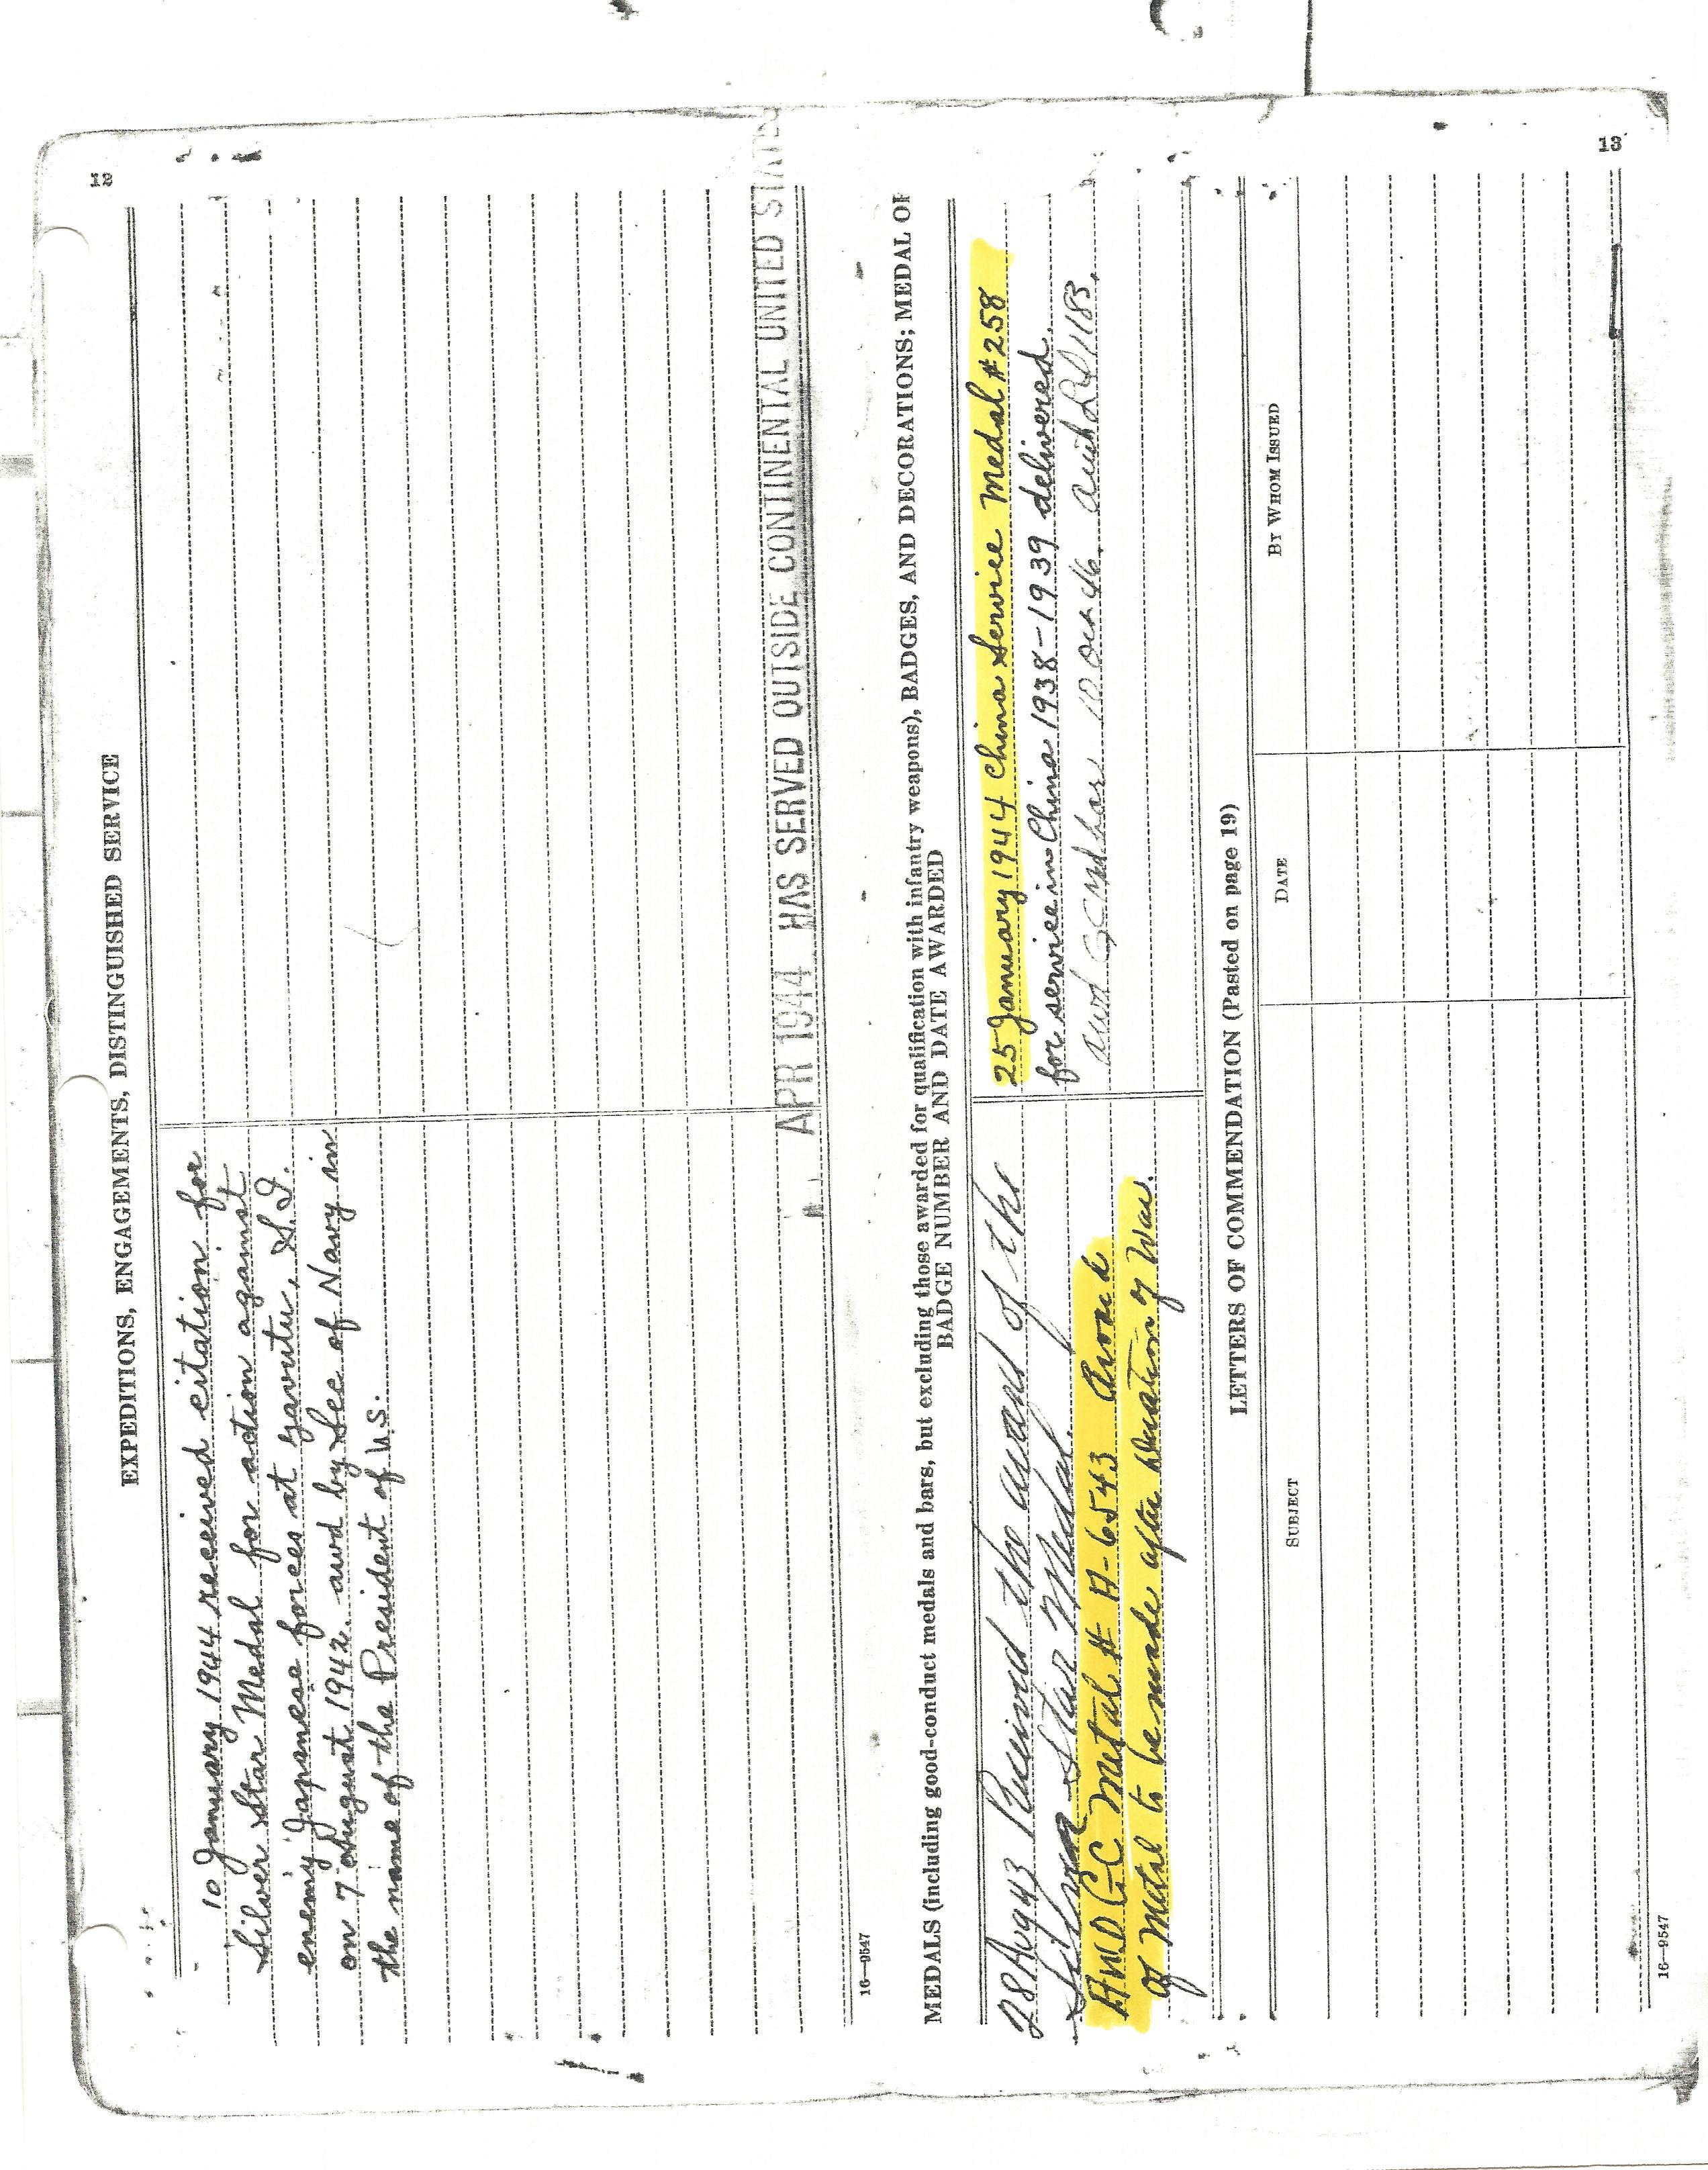 12
EXPEDITIONS, ENGAGEMENTS, DISTINGUISHED SERVICE
10 January 1944 received citation for
Silver Star Medal for action against
enemy Japanese forces at Gavutu, S.I.
on 7 August 1942. awd by Sec of Navy in
the name of the President of U.S.
APR 1944 HAS SERVED OUTSIDE CONTINENTAL UNITED STATES
16—9547
MEDALS (including good-conduct medals and bars, but excluding those awarded for qualification with infantry weapons), BADGES, AND DECORATIONS; MEDAL OR
BADGE NUMBER AND DATE AWARDED
28 Aug 43 Received the award of the
Silver Star Medal.
AWD G-C Metal # A-6543 Award
of Metal to be made after duration of War.
25 January 1944 China Service Medal #258
for service in China 1938-1939 delivered.
awd GCMdbar 10 Oct 46. auth 1183.
LETTERS OF COMMENDATION (Pasted on page 19)
SUBJECT
DATE
BY WHOM ISSUED
16—9547
13